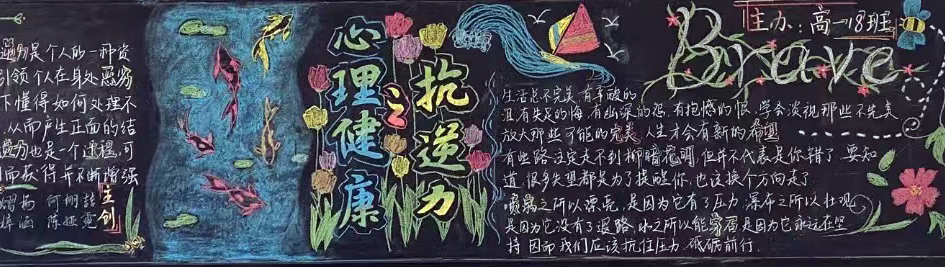 逆力是个人的一种资
引领个人在身处恶劣
下懂得如何处理不
从而产生正面的结
逆力也是一个过程,可
而获得并不断增强
主创
陈娅霓
心理健康
之
抗逆力
主办:高一18班
Brave
生活总不完美,有辛酸的
泪,有失足的悔,有幽深的怨,有抱憾的恨,学会淡视那些不完美
放大那些可能的完美,人生才会有新的希望
有些路注定走不到柳暗花明,但并不代表是你错了,要知
道,很多失望都是为了提醒你,也该换个方向走了
喷泉之所以漂亮,是因为它有了压力,瀑布之所以壮观
是因为它没有了退路,水之所以能穿石是因为它永远在坚
持,因而我们应该抗住压力,砥砺前行.